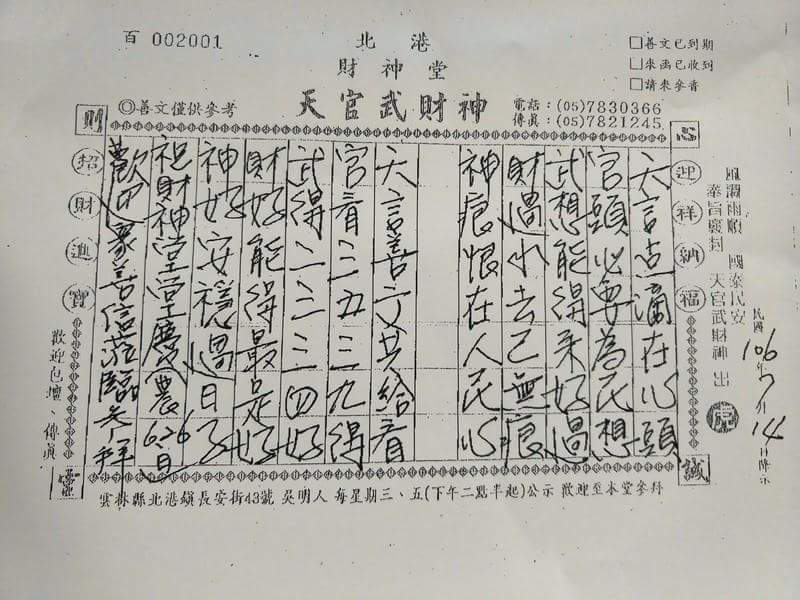 百 002001
北港
財神堂
天官武財神
◎善文僅供參考
□善文已到期
□來函已收到
□請來參香
電話：(05)7830366
傳真：(05)7821245
風調雨順 國泰民安
奉旨敕封 天官武財神 出
民國106年7月14日降示
心
誠
則
靈
迎祥納福
天言点滴在心頭
官頭必要為民想
武想能得来好過
財過小去已無痕
神痕恨在人民心
天言善文共給看
官看三五三九得
武得二三三四好
財好能得最是好
神好安穩過日子
祖財神堂堂慶農6.26日
歡迎眾善信蒞臨參拜
招財進寶
歡迎包壇、傳真
雲林縣北港鎮長安街43號 吳明人 每星期三、五(下午二點半起)公示 歡迎至本堂參拜